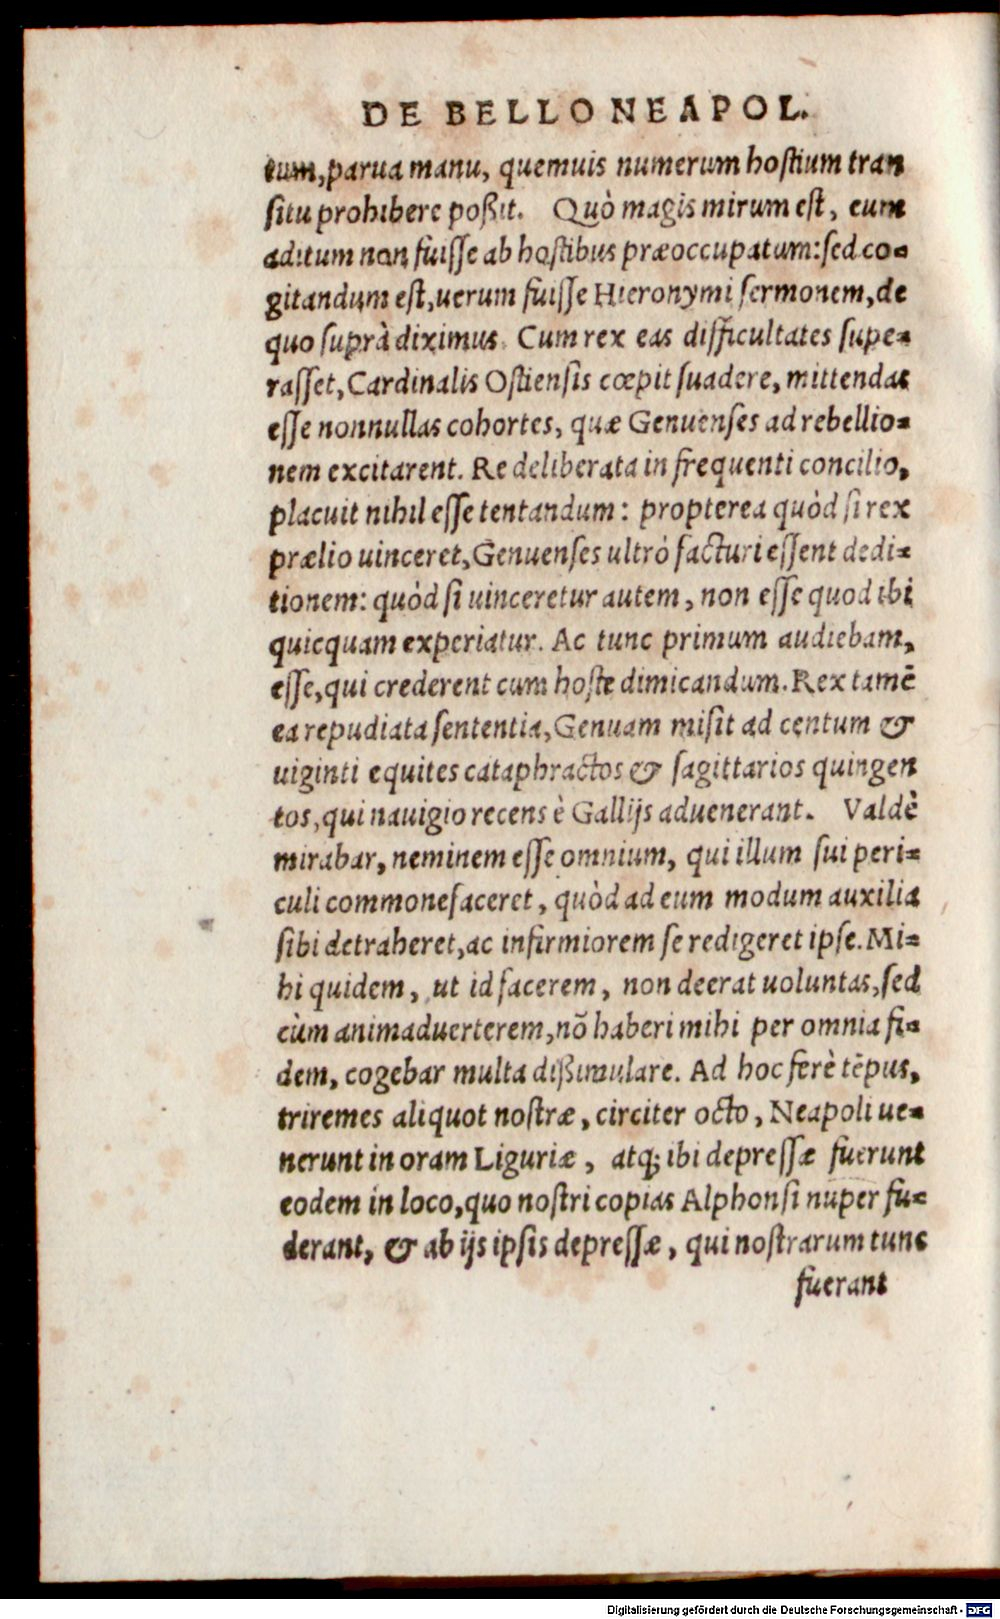 DE BELLO NEAPOL.
tum, parua manu, quemuis numerum hostium tran
situ prohibere poßit. Quò magis mirum est, eum
aditum non fuisse ab hostibus præoccupatum: sed co=
gitandum est, uerum fuisse Hieronymi sermonem, de
quo suprà diximus. Cum rex eas difficultates supe=
rasset, Cardinalis Ostiensis cœpit suadere, mittendas
esse nonnullas cohortes, quæ Genuenses ad rebellio=
nem excitarent. Re deliberata in frequenti concilio,
placuit nihil esse tentandum: propterea quòd si rex
prælio uinceret, Genuenses ultrò facturi essent dedi=
tionem: quòd si uinceretur autem, non esse quod ibi
quicquam experiatur. Ac tunc primum audiebam,
esse, qui crederent cum hoste dimicandum. Rex tamē
ea repudiata sententia, Genuam misit ad centum &
uiginti equites cataphractos & sagittarios quingen
tos, qui nauigio recens è Gallijs aduenerant. Valdè
mirabar, neminem esse omnium, qui illum sui peri=
culi commonefaceret, quòd ad eum modum auxilia
sibi detraheret, ac infirmiorem se redigeret ipse. Mi=
hi quidem, ut id facerem, non deerat uoluntas, sed
cùm animaduerterem, nō haberi mihi per omnia fi=
dem, cogebar multa dißimulare. Ad hoc ferè tēpus,
triremes aliquot nostræ, circiter octo, Neapoli ue=
nerunt in oram Liguriæ, atq; ibi depressæ fuerunt
eodem in loco, quo nostri copias Alphonsi nuper fu=
derant, & ab ijs ipsis depressæ, qui nostrarum tunc
fuerant
Digitalisierung gefördert durch die Deutsche Forschungsgemeinschaft - DFG